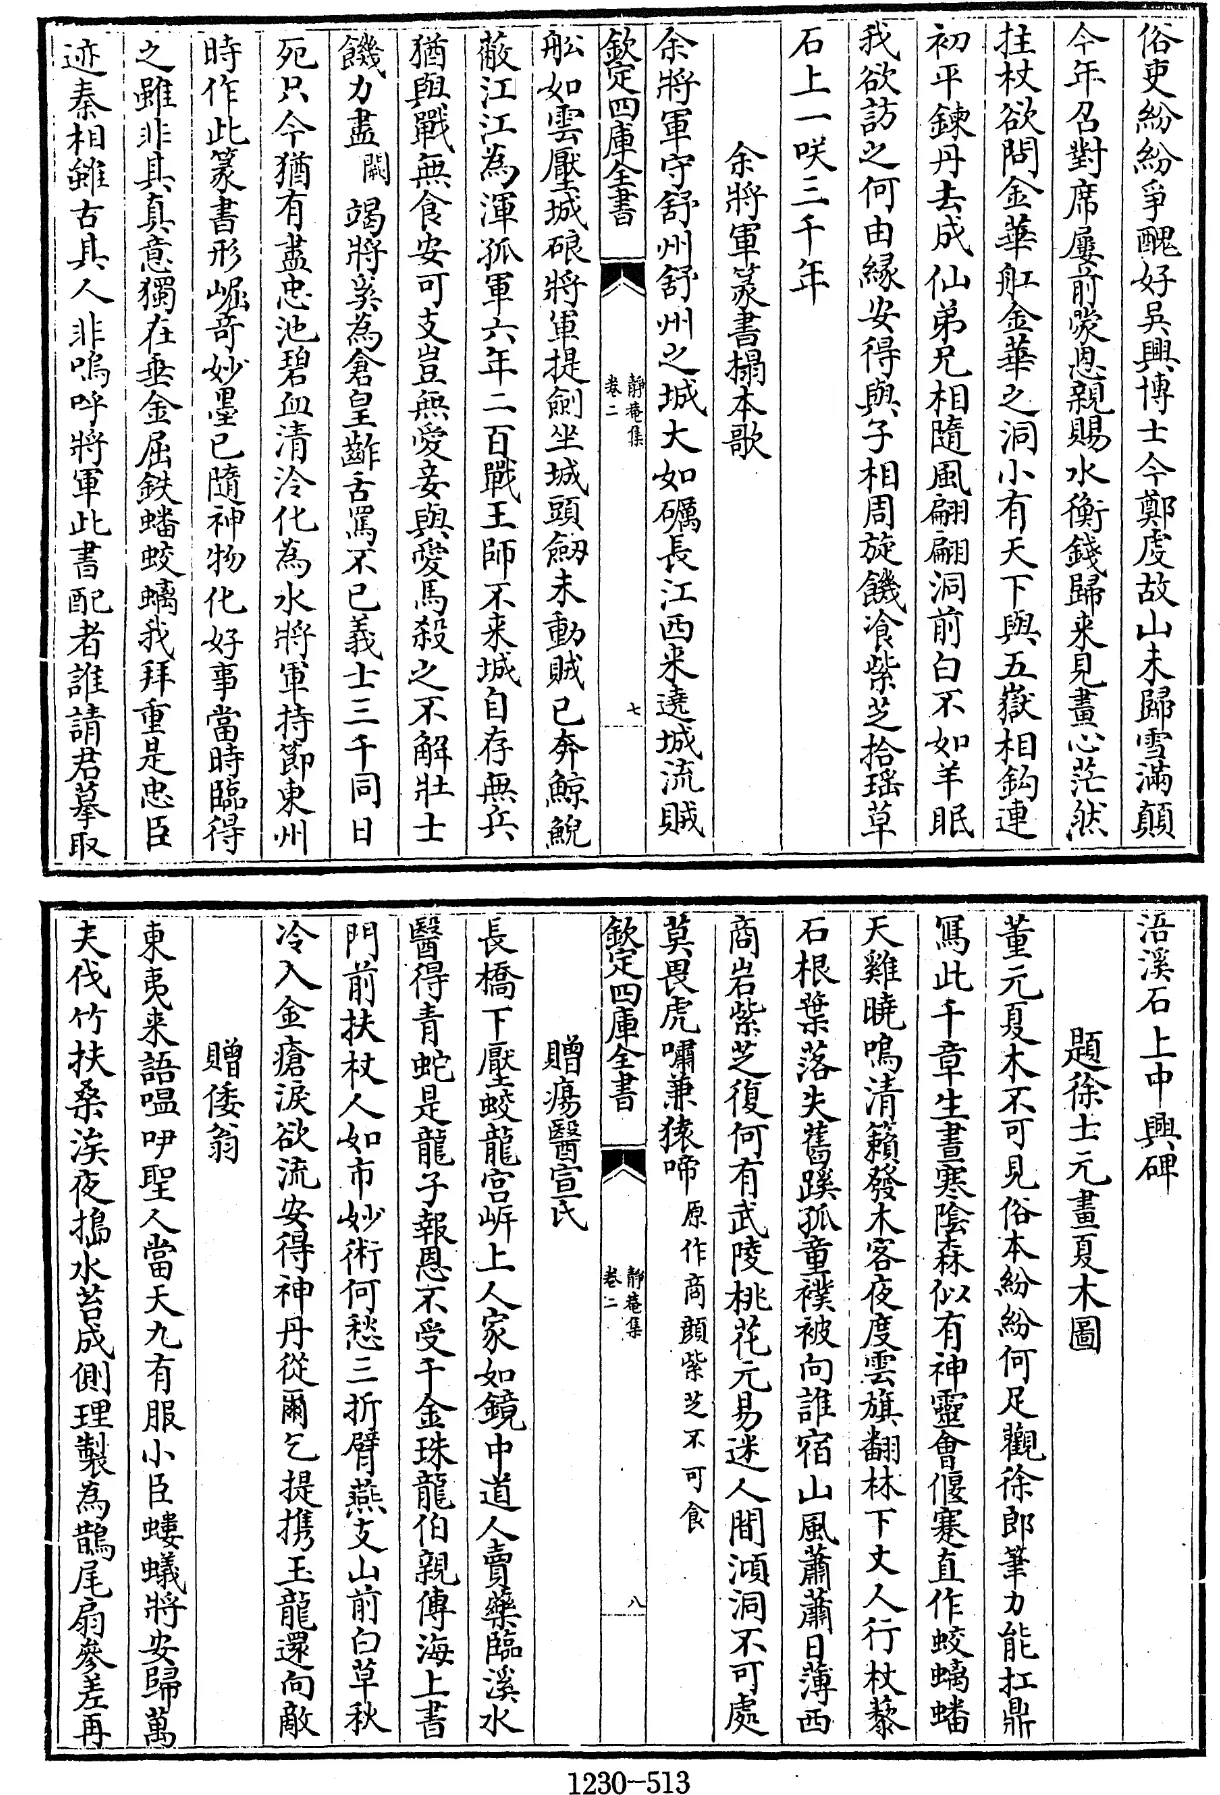 俗吏紛紛爭醜好吳興博士今鄭虔故山未歸雪滿顛
今年召對席屢前蒙恩親賜水衡錢歸来見畫心茫然
拄杖欲問金華舡金華之洞小有天下與五嶽相鈎連
初平鍊丹去成仙弟兄相隨風翩翩洞前白不如羊眠
我欲訪之何由緣安得與子相周旋饑飡紫芝拾瑶草
石上一咲三千年
余將軍篆書搨本歌
余將軍守舒州舒州之城大如礪長江西来遶城流賊
欽定四庫全書
靜菴集
卷二
七
舩如雲壓城硠將軍提劍坐城頭劒未動賊已奔鯨鯢
蔽江江為渾孤軍六年二百戰王師不来城自存無兵
猶與戰無食安可支豈無愛妾與愛馬殺之不解壯士
饑力盡闕竭將奚為倉皇齚舌罵不已義士三千同日
死只今猶有盡忠池碧血清泠化為水將軍持節東州
時作此篆書形崛奇妙墨已隨神物化好事當時臨得
之雖非其真意獨在垂金屈鉄蟠蛟螭我拜重是忠臣
迹秦相雖古其人非嗚呼將軍此書配者誰請君摹取
浯溪石上中興碑
題徐士元畫夏木圖
董元夏木不可見俗本紛紛何足觀徐郎筆力能扛鼎
寫此千章生晝寒陰森似有神靈會偃蹇直作蛟螭蟠
天雞曉鳴清籟發木客夜度雲旗翻林下丈人行杖藜
石根葉落失舊蹊孤童襆被向誰宿山風蕭蕭日薄西
商岩紫芝復何有武陵桃花元易迷人間澒洞不可處
莫畏虎嘯兼猿啼原作商顏紫芝不可食
欽定四庫全書
靜菴集
卷二
八
贈瘍醫宣氏
長橋下壓蛟龍宮岍上人家如鏡中道人賣藥臨溪水
醫得青蛇是龍子報恩不受千金珠龍伯親傳海上書
門前扶杖人如市妙術何愁三折臂燕支山前白草秋
冷入金瘡淚欲流安得神丹從爾乞提携玉龍還向敵
贈倭翁
東夷来語嗢咿聖人當天九有服小臣螻蟻將安歸萬
夫伐竹扶桑涘夜搗水苔成側理製為鵲尾扇參差再
1230-513